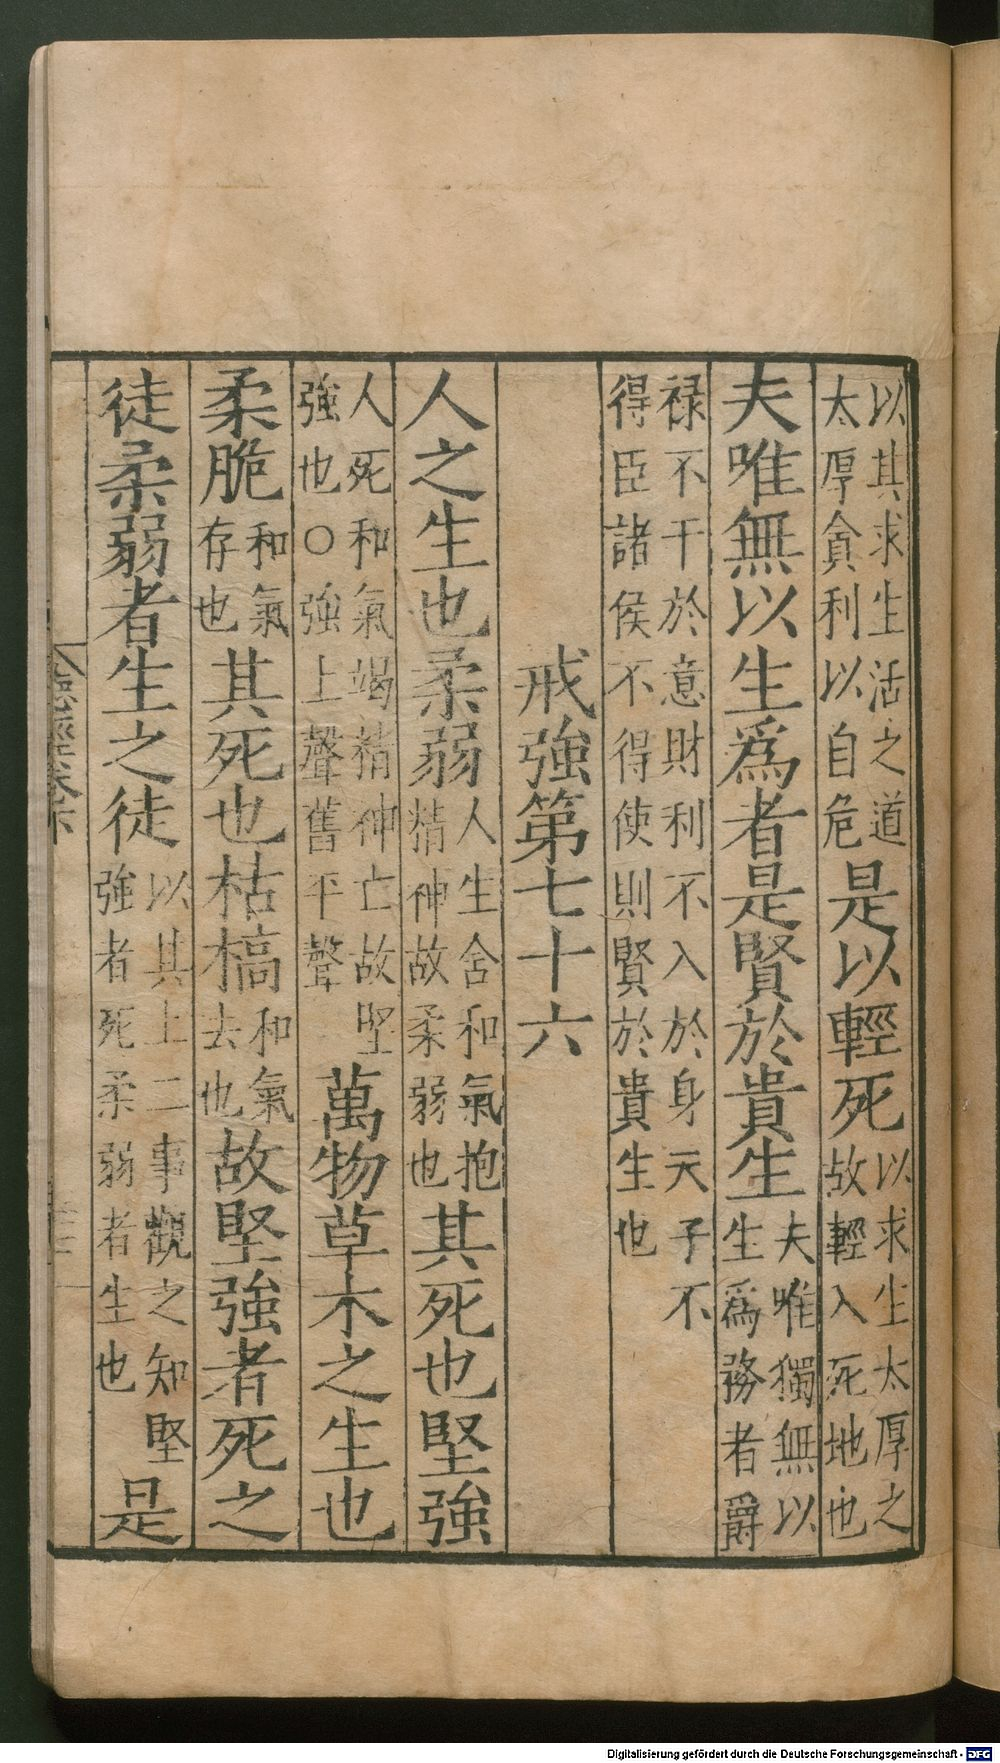 以其求生活之道
太厚貪利以自危
是以輕死
以求生太厚之
故輕入死地也
夫唯無以生爲者是賢於貴生
夫唯獨無以
生爲務者爵
禄不干於意財利不入於身天子不
得臣諸侯不得使則賢於貴生也
戒強第七十六
人之生也柔弱
人生含和氣抱
精神故柔弱也
其死也堅強
人死和氣竭精神亡故堅
強也○強上聲舊平聲
萬物草木之生也
柔脆
和氣
存也
其死也枯槁
和氣
去也
故堅強者死之
徒柔弱者生之徒
以其上二事觀之知堅
強者死柔弱者生也
是
Digitalisierung gefördert durch die Deutsche Forschungsgemeinschaft - DFG